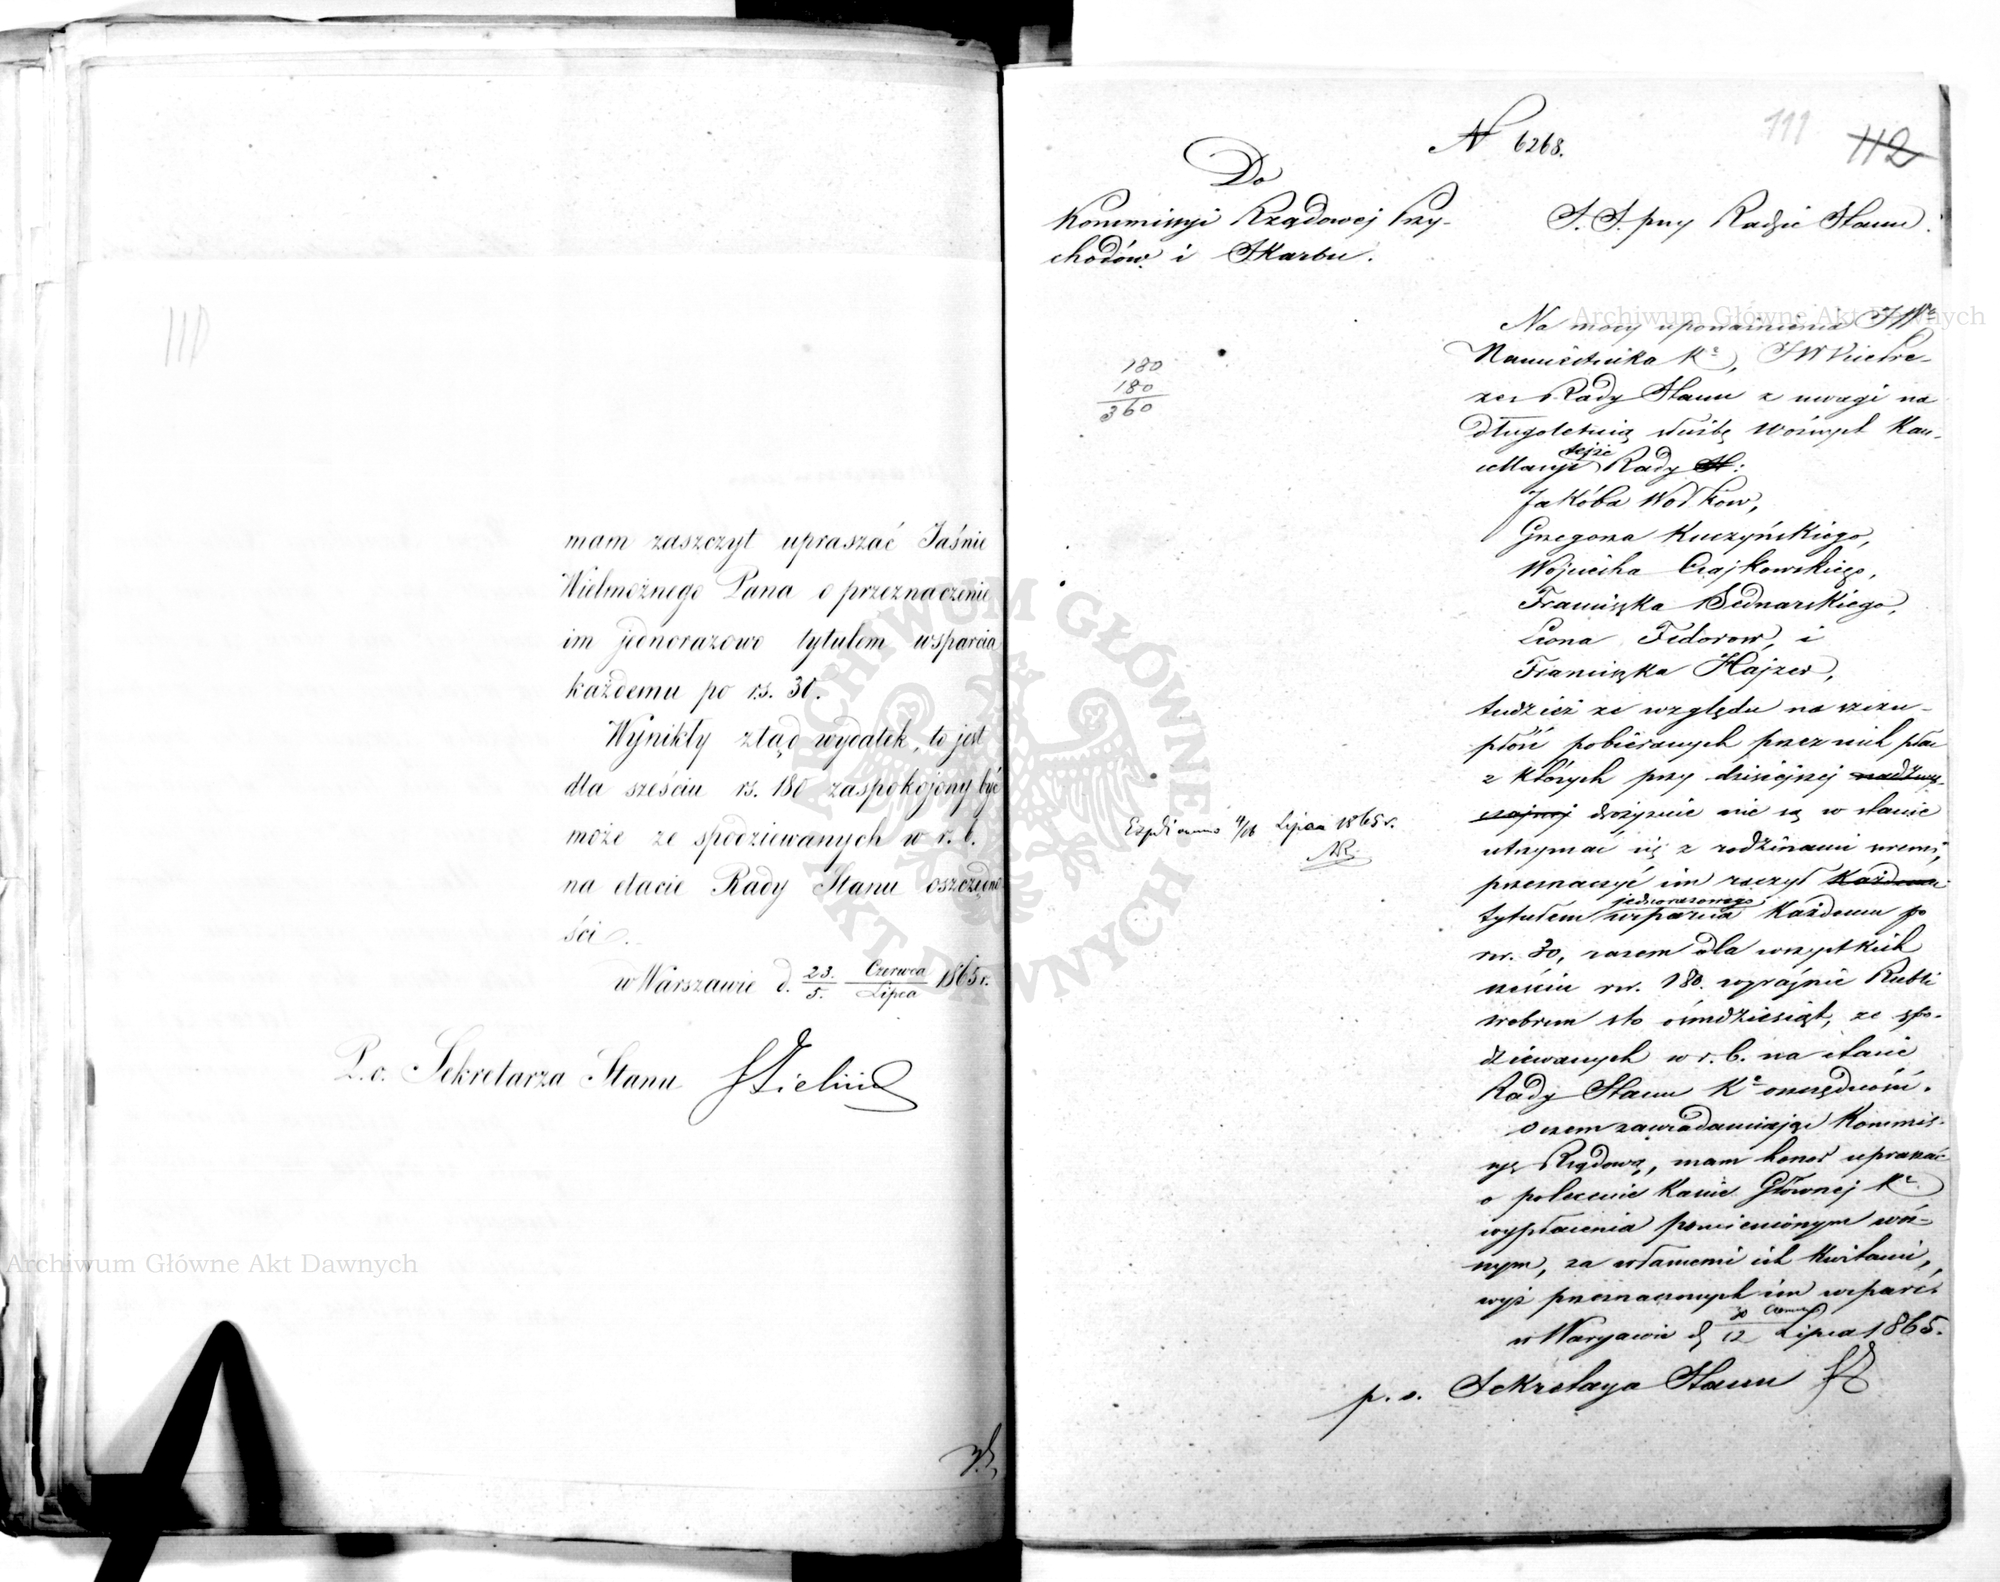 110
mam zaszczyt upraszać Jaśnie
Wielmożnego Pana o przeznaczenie
im jednorazowo tytułem wsparcia
każdemu po rs. 30.
Wynikły ztąd wydatek, to jest
dla sześciu rs. 180 zaspokojony być
może ze spodziewanych w r. b.
na etacie Rady Stanu oszczędno
ści.
w Warszawie d. 23./5. Czerwca/Lipca 1865 r.
P. o. Sekretarza Stanu
111 112
N 6268.
Do
Kommissyi Rządowej Przy-
chodów i Skarbu.
S. S. przy Radzie Stanu.
180
180
360
Expedowano 4/16 Lipca 1865 r.
Na mocy upoważnienia JWo
Namiestnika Ko, JW Vice Pre-
zes Rady Stanu z uwagi na
długoletnią służbę woźnych Kan-
cellaryi tejże Rady St:
Jakóba Wołkow,
Grzegorza Kuczyńskiego,
Wojciecha Czajkowskiego,
Franciszka Bednarskiego,
Leona Fedorow, i
Franciszka Hajzer,
tudzież ze względu na szczu-
płość pobieranych przez nich płac
z których przy dzisiejszej nadzwy-
czajnej drożyźnie nie są w stanie
utrzymać się z rodzinami swemi,
przeznaczyć im raczył każdemu
tytułem jednorazowego wsparcia każdemu po
rsr. 30, razem dla wszystkich
sześciu rsr. 180. wyraźnie Rubli
srebrem sto ośmdziesiąt, ze spo-
dziewanych w r. b. na etacie
Rady Stanu Ko oszczędności.
O czem zawiadamiając Kommis-
syę Rządową, mam honor upraszać
o polecenie Kassie Głównej Ko
wypłacenia pomienionym woź-
nym, za własnemi ich kwitami,
wyż przeznaczonych im wsparć.
w Warszawie d. 30/12 Czerwca/Lipca 1865.
p. o. Sekretarza Stanu
Archiwum Główne Akt Dawnych
Archiwum Główne Akt Dawnych
ARCHIWUM GŁÓWNE AKT DAWNYCH